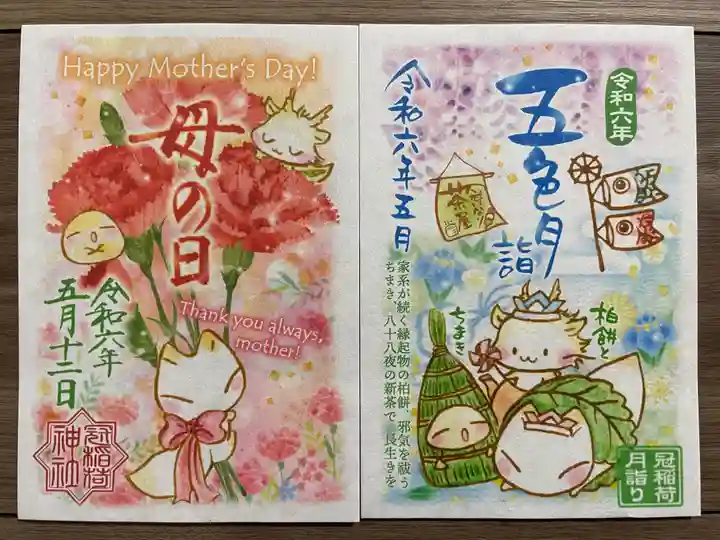 Happy Mother's Day!
母の日
Thank you always,
mother!
令和六年
五月十二日
冠稲荷
神社
令和六年
五色月
詣
令和六年五月
茶屋
家系が続く縁起物の柏餅 邪気を祓う
ちまき、八十八夜の新茶で 長生きを
ちまき
柏餅と
冠稲荷
月詣り